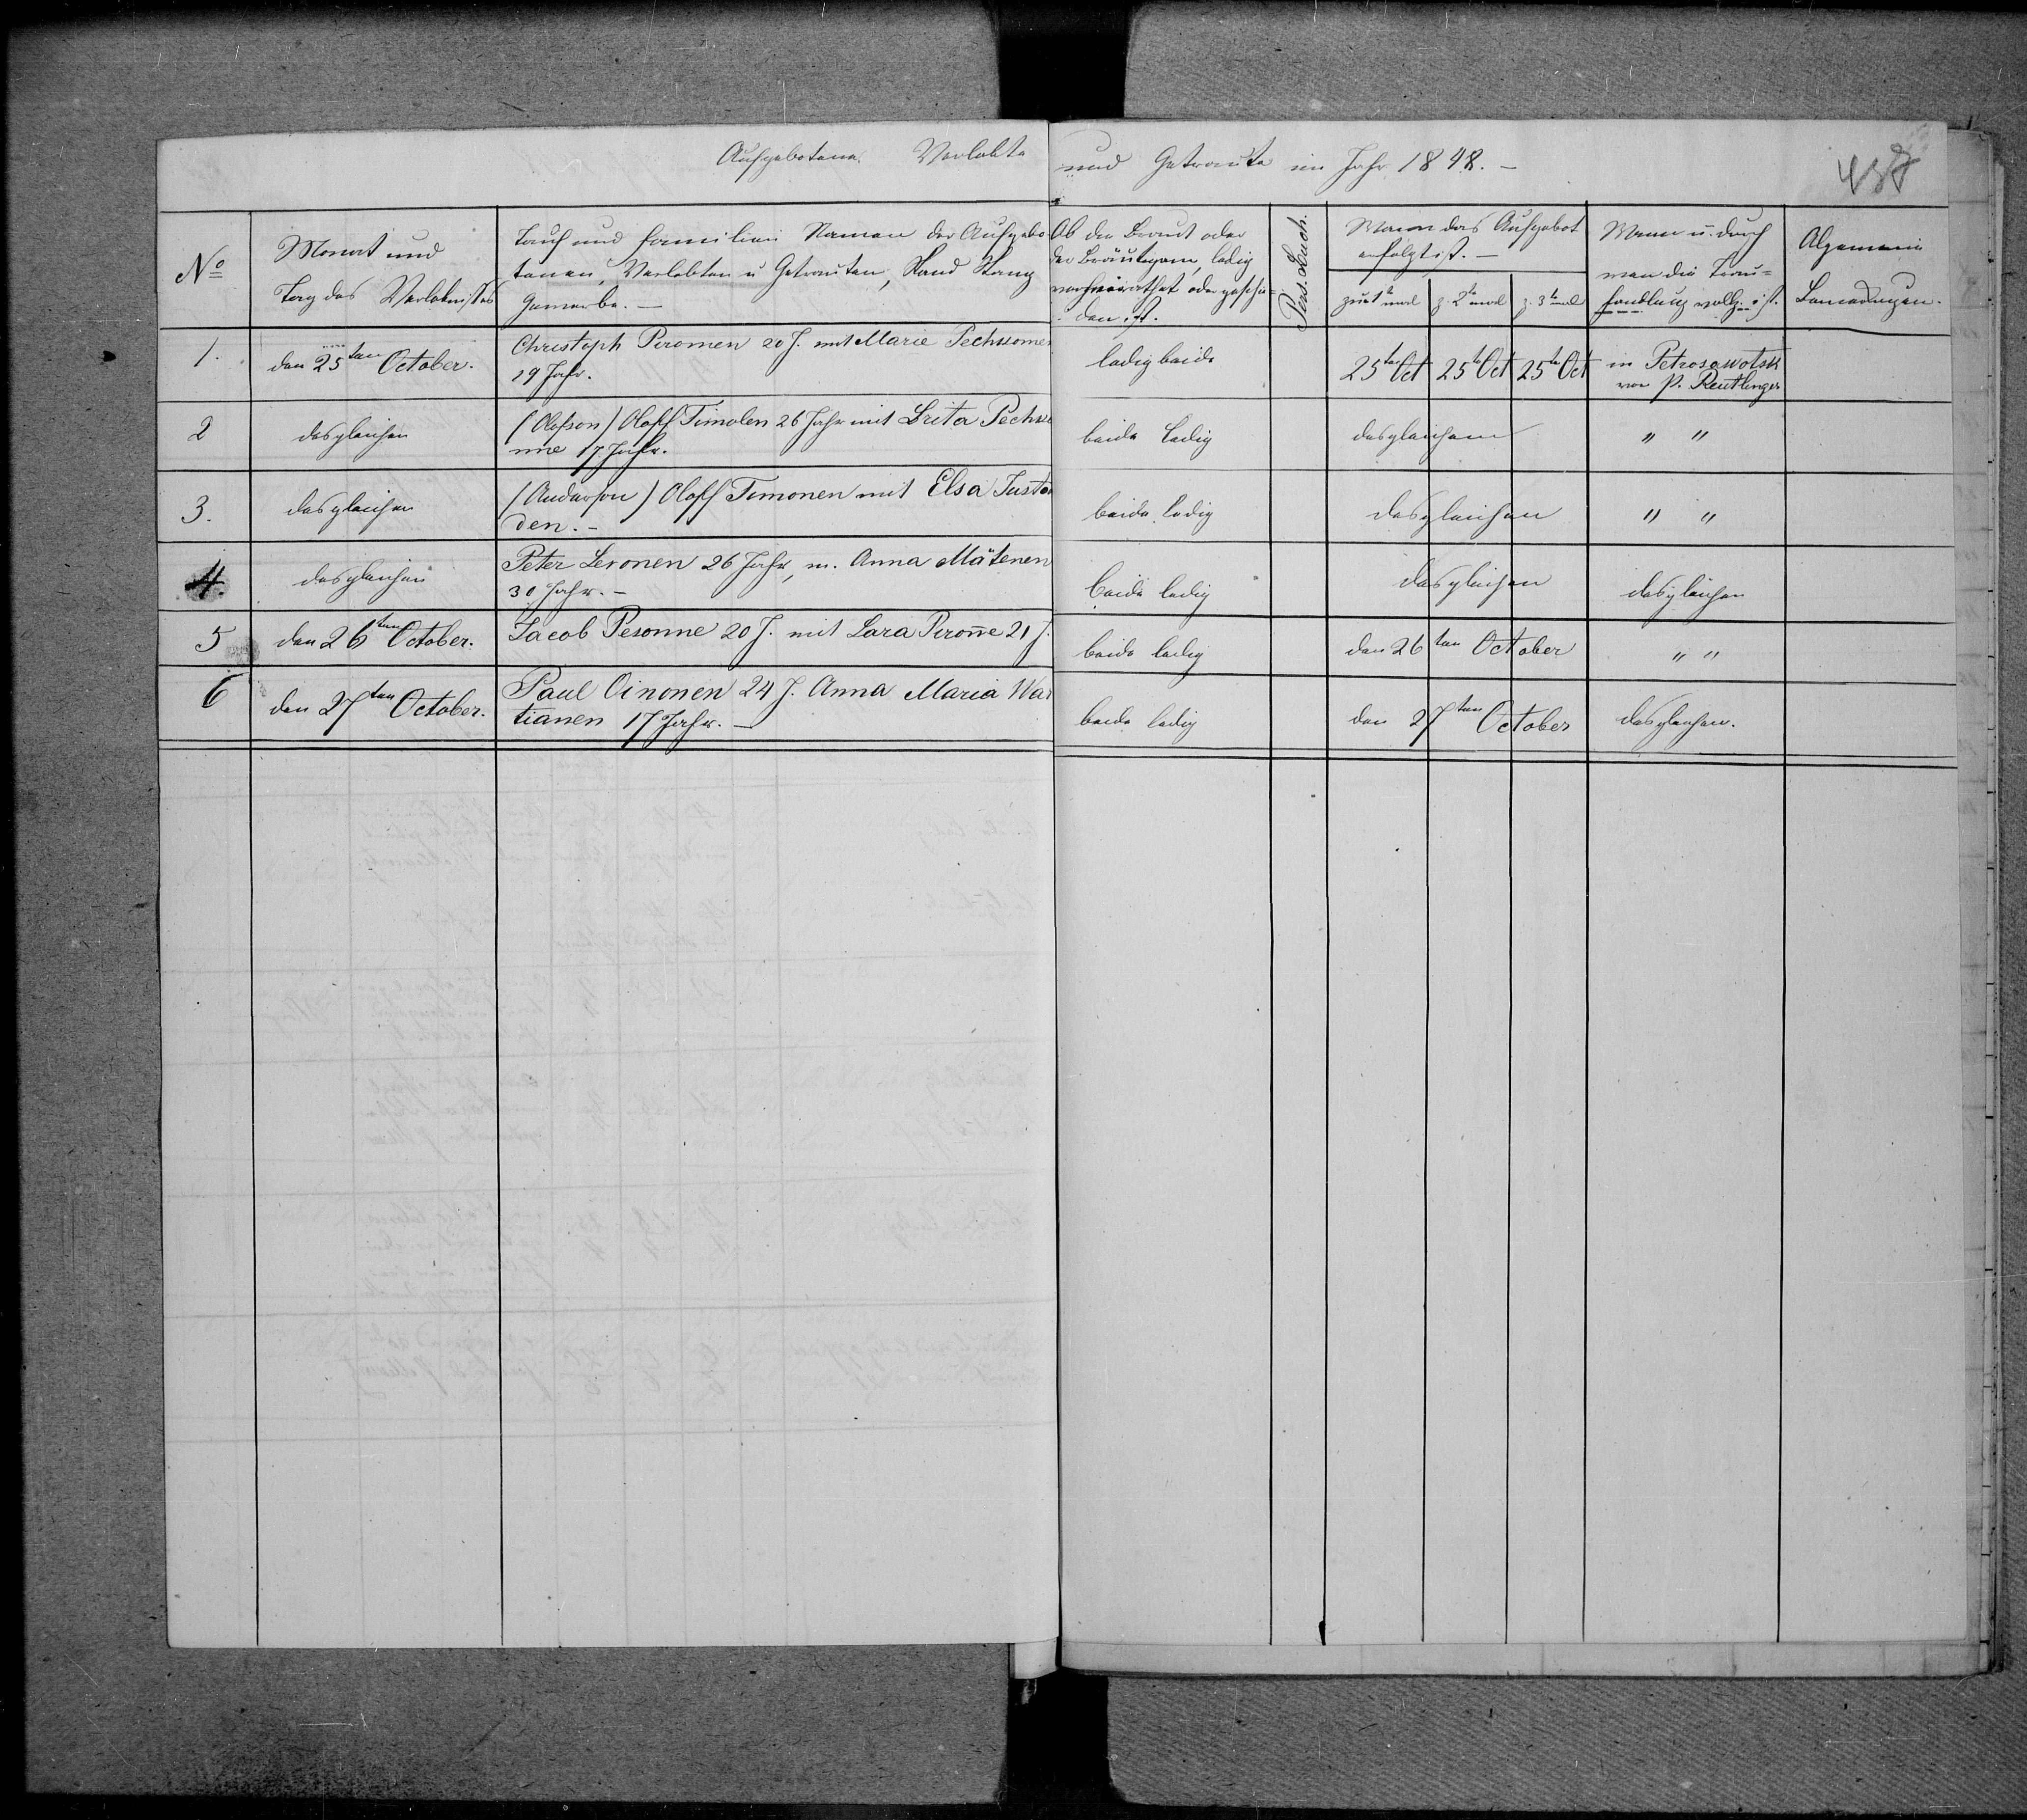 Aufgebotene Verlobte und Getraute im Jahr 1848. –
438
No
Monat und
Tag des Verlobnisses
Tauf und Familien Namen der Aufgebo
tenen, Verlobten u Getrauten, Stand Rang
Gewerbe. –
Ob die Braut oder
der Bräutigam, ledig
verheirathet oder geschie=
den ist.
Pers. Buch.
Wann das Aufgebot
erfolgt ist. –
zum 1te mal
z. 2te mal
z. 3te mal
Wann u. durch
wen die Trau=
handlung vollz. ist.
Algemeine
Bemerkungen.
1. den 25ten October. Christoph Piromen 20 J. mit Marie Pechkomen
19 Jahr.
ledig beide 25te Oct 25te Oct 25te Oct in Petrosawotsk
von P. Reutlinger
2 desgleichen (Olofson) Oloff Timolen 26 Jahr mit Brita Pechko
nne 17 Jahr.
beide ledig desgleichen " "
3. desgleichen (Anderson) Oloff Timonen mit Elsa Justo
den. –
beide ledig desgleichen " "
4. desgleichen Peter Levonen 26 Jahr, m. Anna Mätenen
30 Jahr. –
beide ledig desgleichen desgleichen
5 den 26ten October. Jacob Pesonne 20 J. mit Lara Piroñe 21 J.
beide ledig den 26ten October " "
6 den 27ten October. Paul Oinonen 24 J. Anna Maria War
tianen 17 Jahr. –
beide ledig den 27ten October desgleichen.